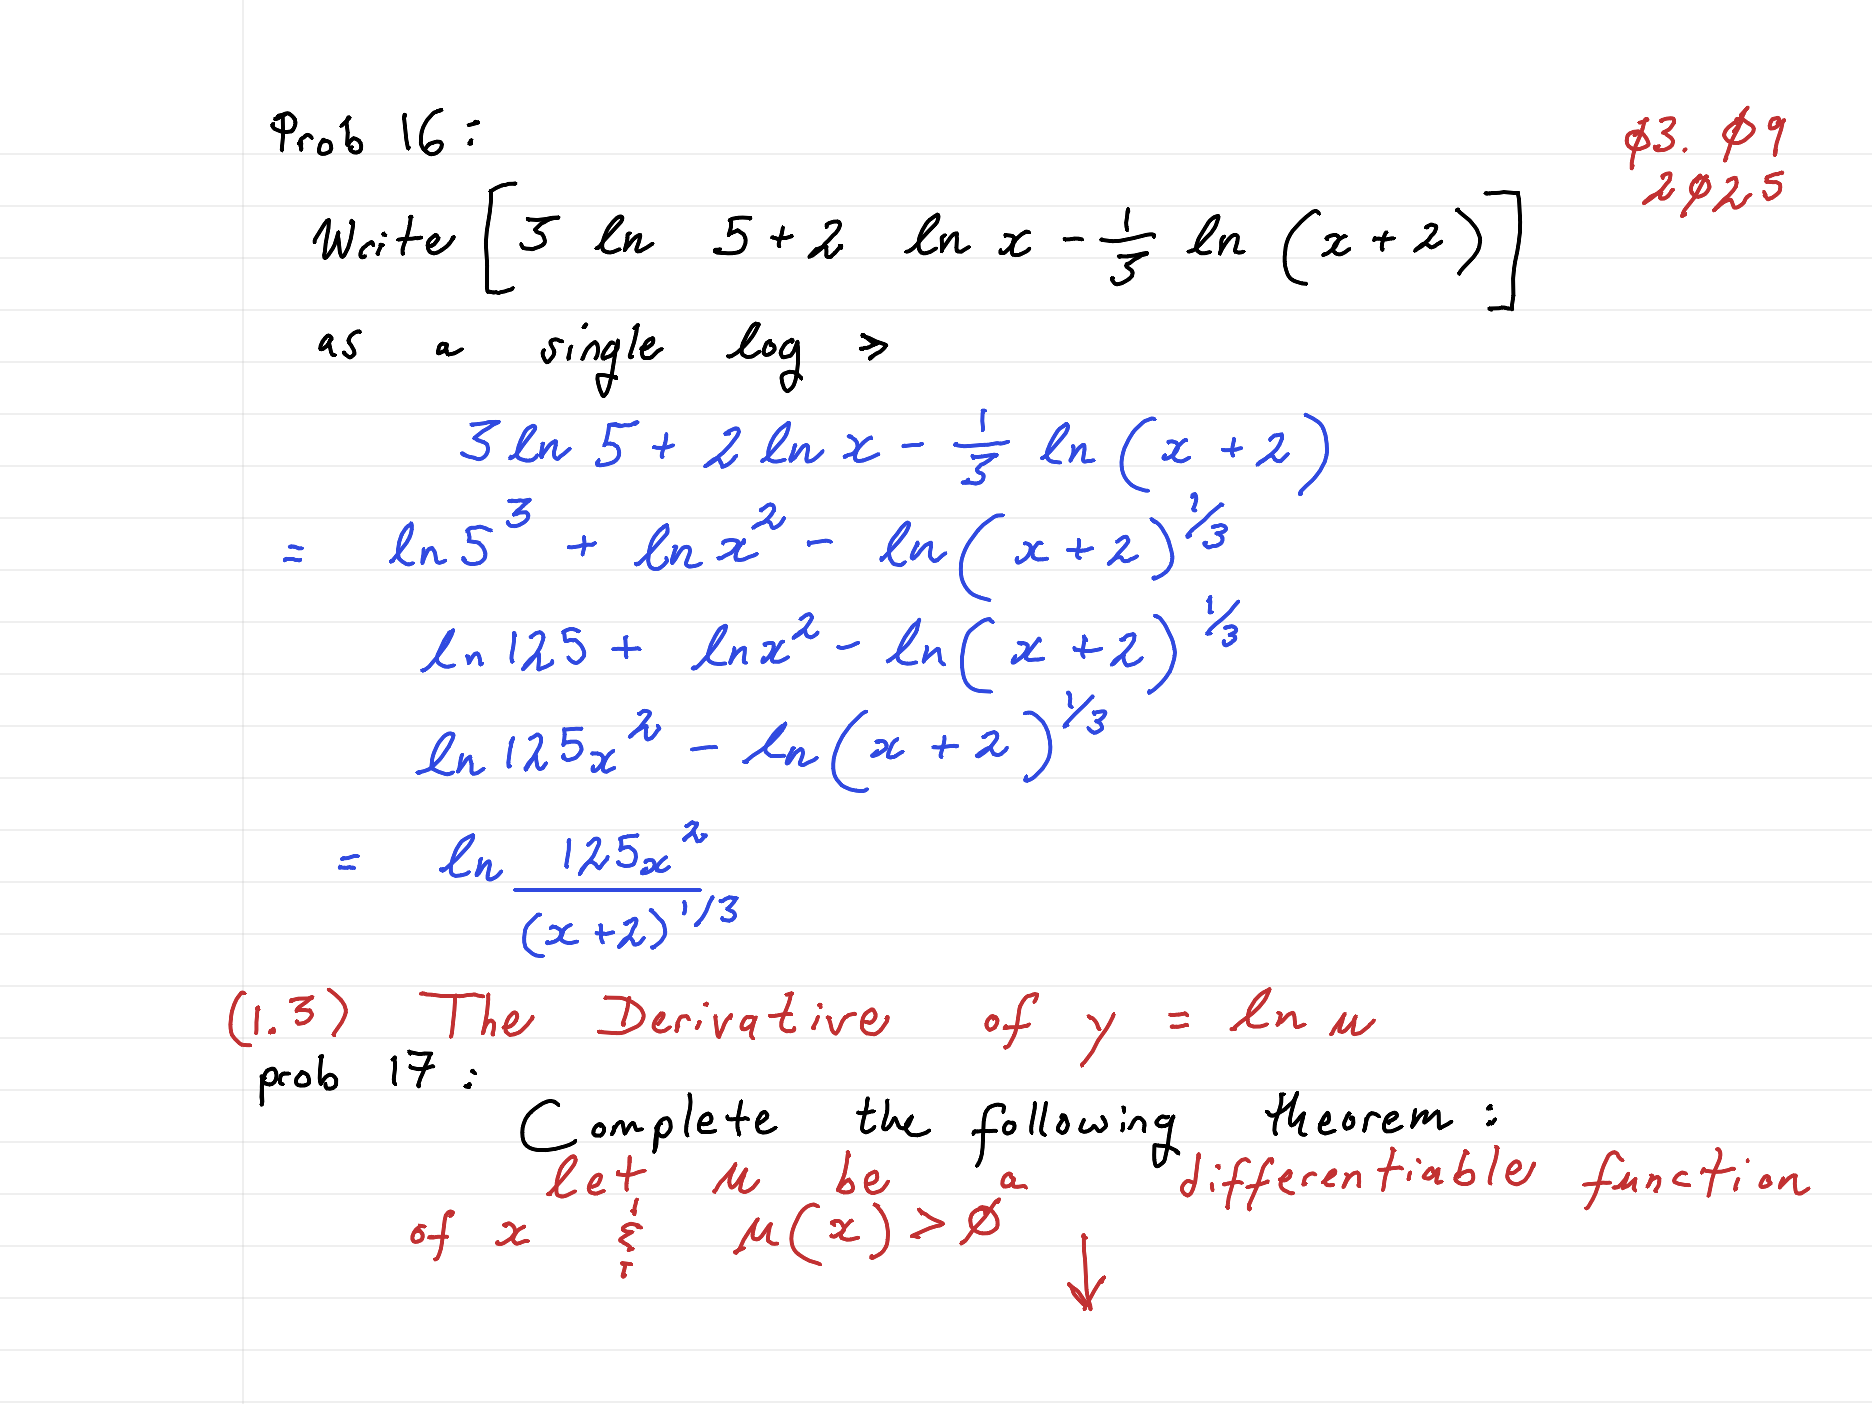 Prob 16:
ø3. ø9
2ø25
Write [3 ln 5 + 2 ln x - 1/3 ln (x + 2)]
as a single log »
3 ln 5 + 2 ln x - 1/3 ln (x + 2)
= ln 5³ + ln x² - ln (x + 2)^1/3
ln 125 + ln x² - ln (x + 2)^1/3
ln 125x² - ln (x + 2)^1/3
= ln 125x² / (x + 2)^1/3
(1.3) The Derivative of y = ln u
prob 17:
Complete the following theorem:
let u be a differentiable function
of x & u(x) > ø ↓